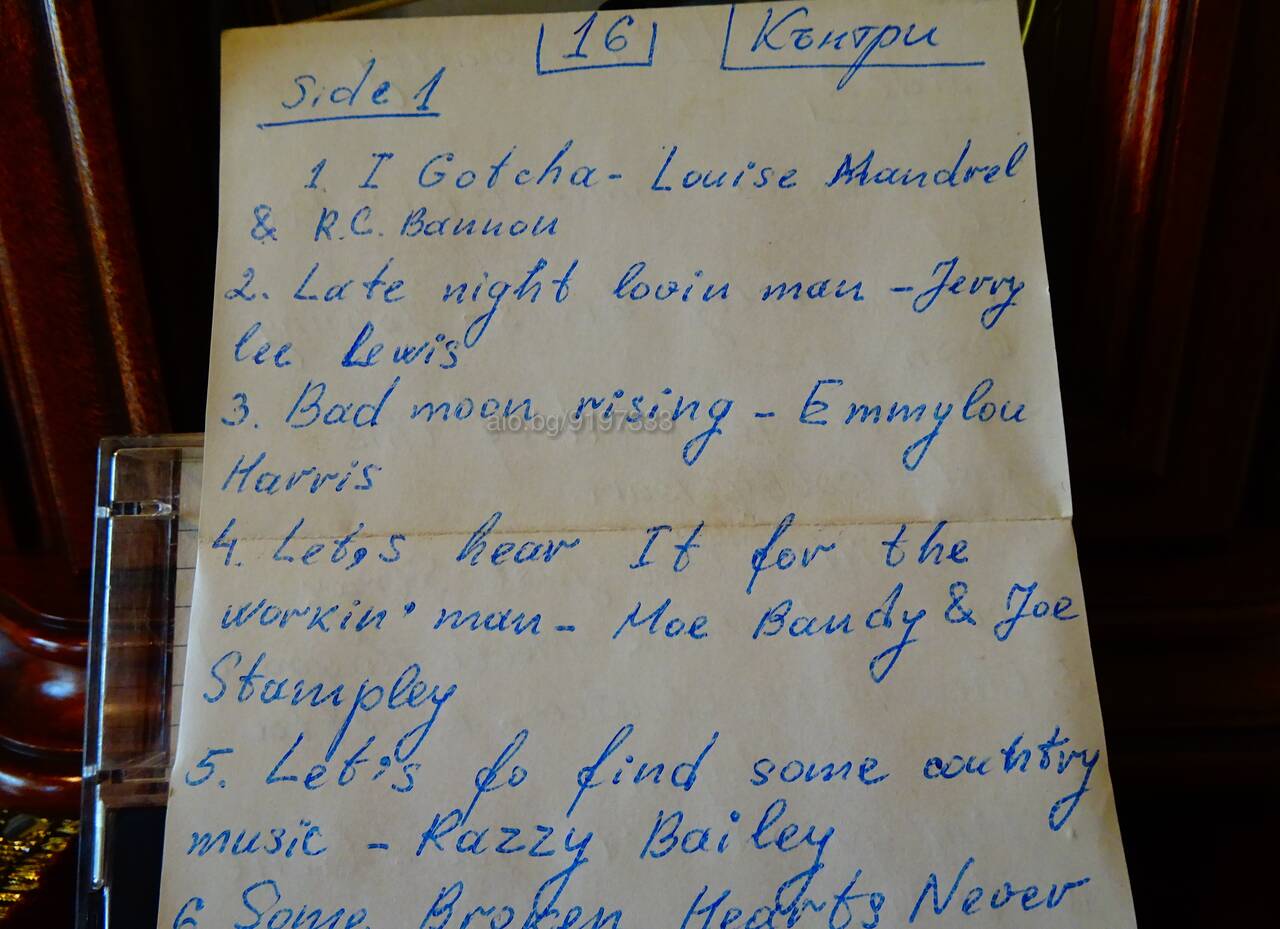 16 Кънтри
Side 1
1. I Gotcha - Louise Mandrel
& R.C. Bannon
2. Late night lovin man - Jerry
lee Lewis
3. Bad moon rising - Emmylou
alo.bg/9197333
Harris
4. Let,s hear It for the
workin' man - Moe Bandy & Joe
Stampley
5. Let's fo find some country
music - Razzy Bailey
6 Some Broken Hearts Never